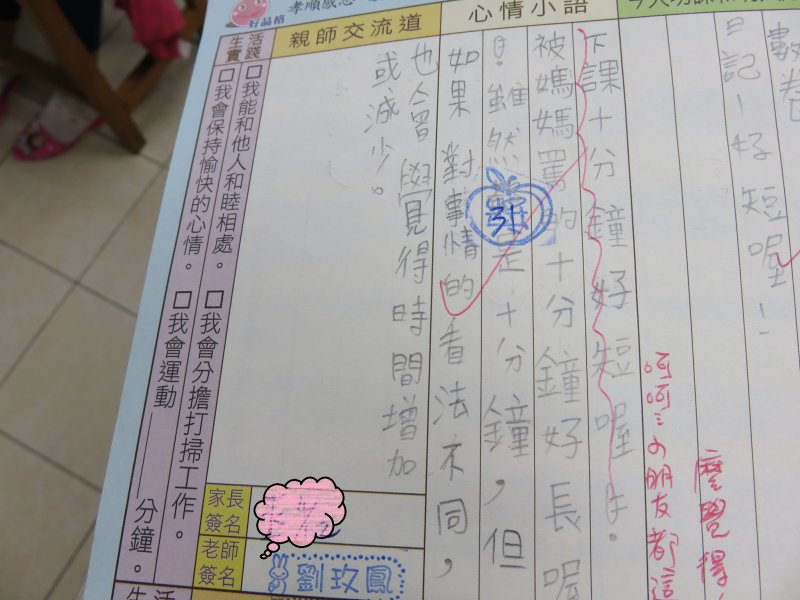 好品格
孝順感恩
心情小語
親師交流道
生活
實踐
數卷
日記!好短喔!
麼覺得
呵呵…小朋友都這
下課十分鐘好短喔!
被媽媽罵的十分鐘好長喔
!雖然都是十分鐘,但
如果對事情的看法不同,
也會覺得時間增加
或減少。
31
□我能和他人和睦相處。□我會分擔打掃工作。
□我會保持愉快的心情。□我會運動 分鐘。
家長
簽名
老師
簽名
劉玫鳳
生活